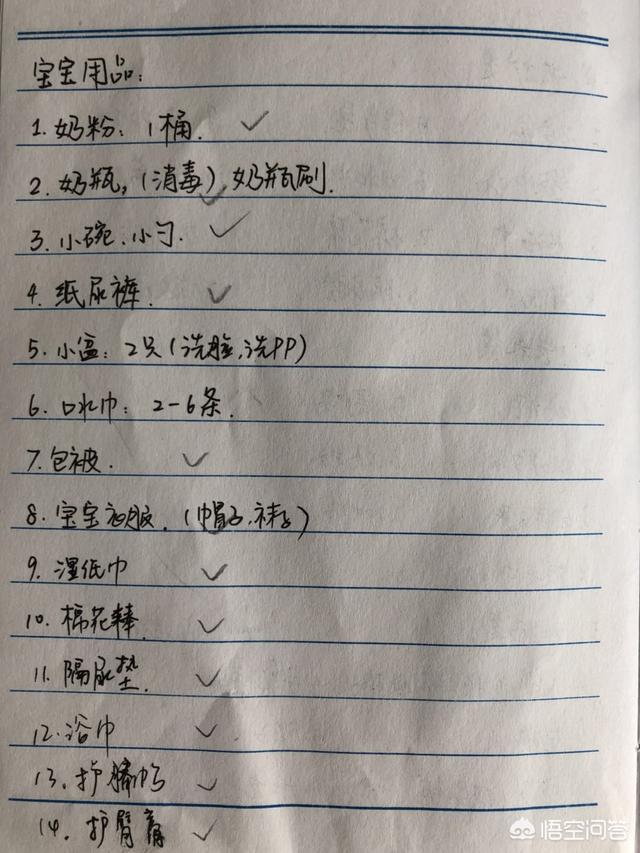 宝宝用品:
1. 奶粉: 1桶. ✓
2. 奶瓶, (消毒) 奶瓶刷. ✓
3. 小碗. 小勺. ✓
4. 纸尿裤. ✓
5. 小盆: 2只 (洗脸, 洗PP)
6. 口水巾: 2-6条.
7. 包被. ✓
8. 宝宝衣服. (帽子, 袜子) ✓
9. 湿纸巾 ✓
10. 棉花棒. ✓
11. 隔尿垫. ✓
12. 浴巾 ✓
13. 护脐巾 ✓
14. 护臀膏 ✓
悟空问答